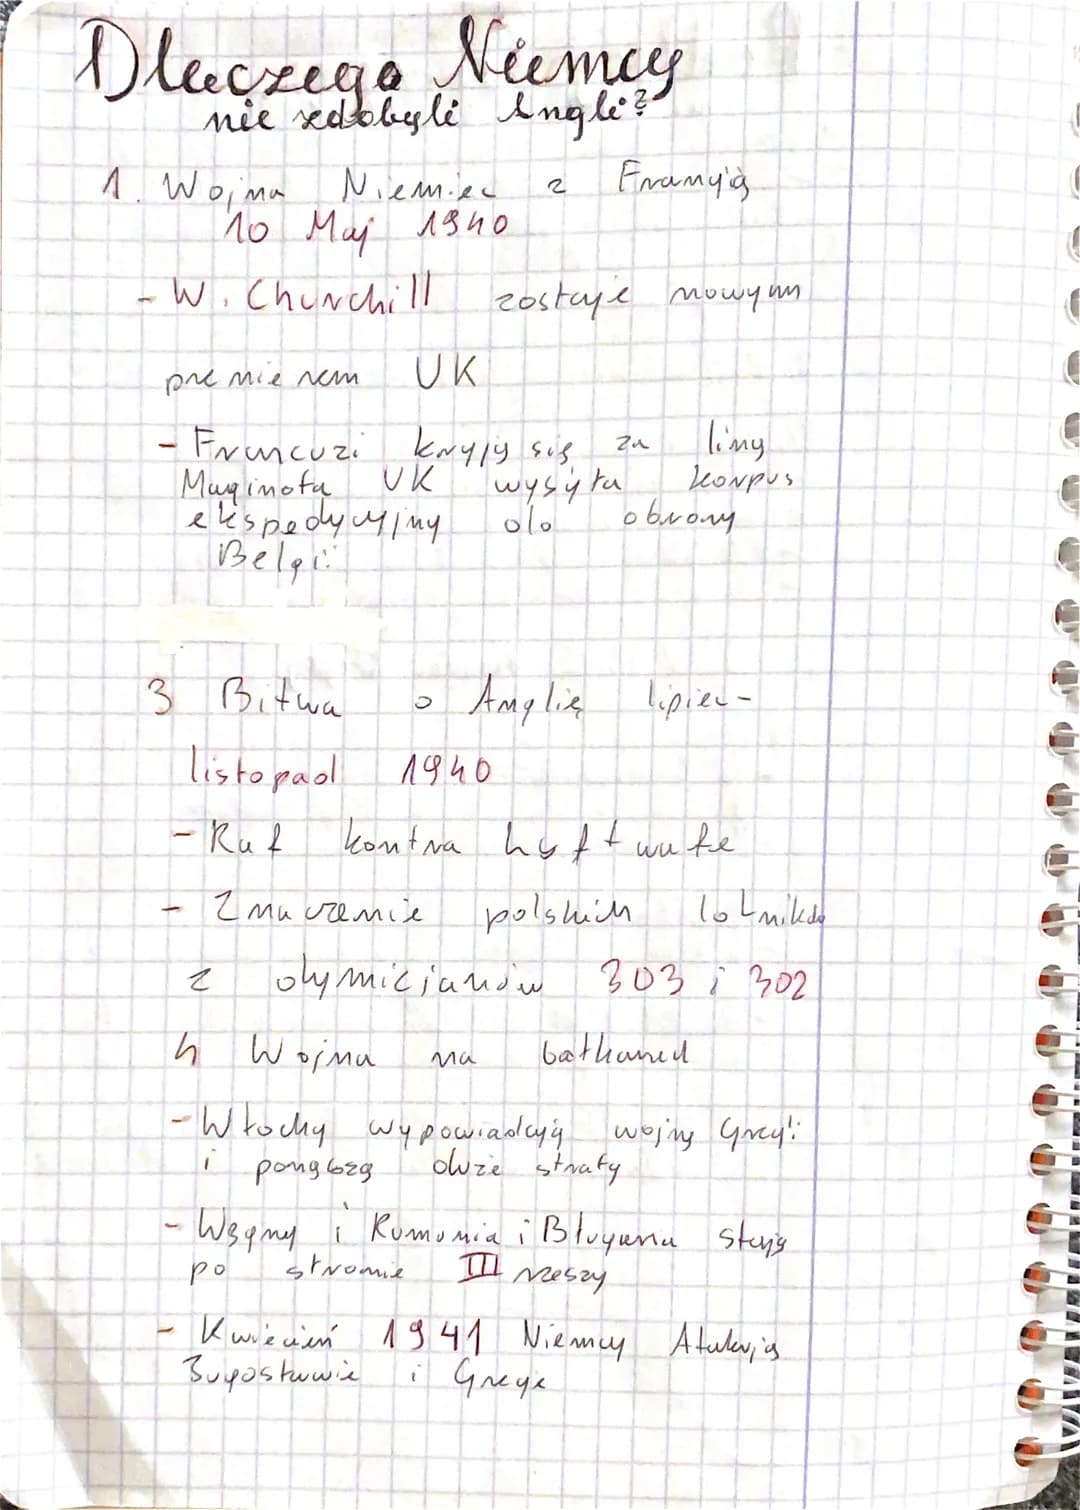 Dlaczego Niemcy
nie zdobyli Angli?
1. Wojna Niemiec z Francją
10 Maj 1940
- W. Churchill zostaje nowym
premierem UK
- Francuzi kryją się za liną
Maginota UK wysyła korpus
ekspedycyjny do obrony
Belgii
3 Bitwa o Anglię lipiec-
listopad 1940
- Raf kontra luftwafe
- Znaczenie polskich lotników
z dymicjanów 303 i 302
4 Wojna na bałkanach
- Włochy wypowiadają wojnę Grecji
i ponoszą duże straty
- Węgry i Rumunia i Bługaria stają
po stronie III rzeszy
- Kwiecień 1941 Niemcy Atakują
Jugosławie i Grecje